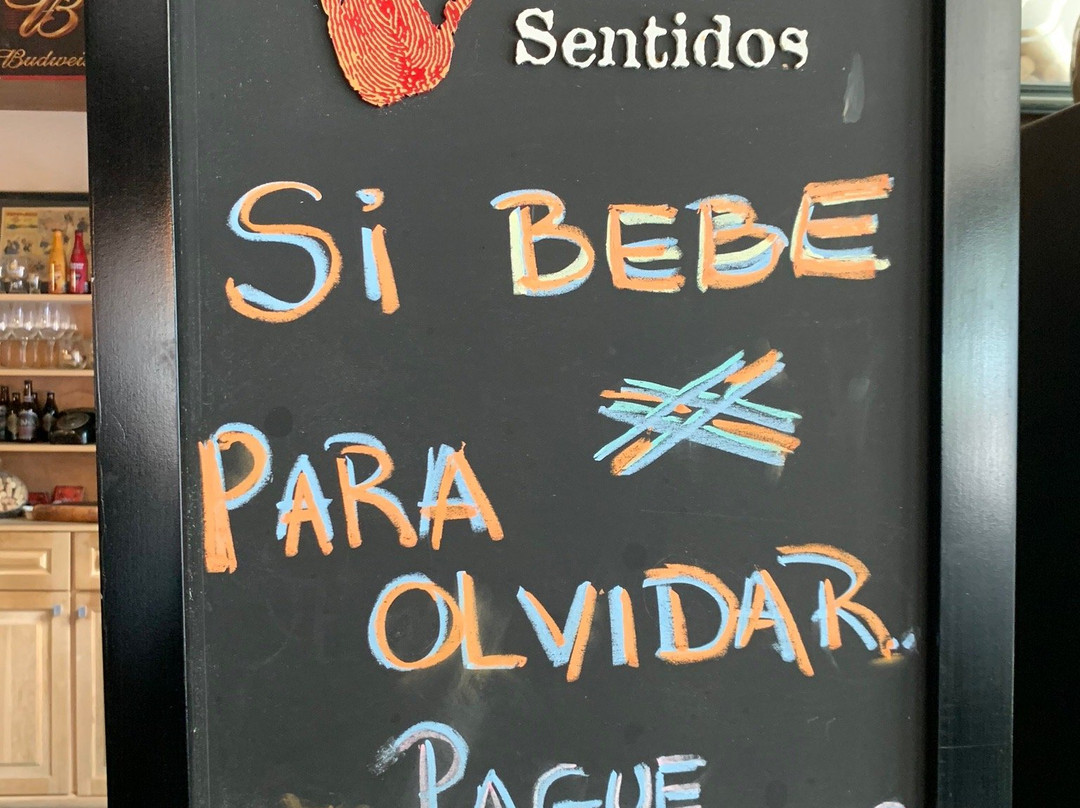 Budwei
Sentidos
SI BEBE
PARA
OLVIDAR..
PAGUE